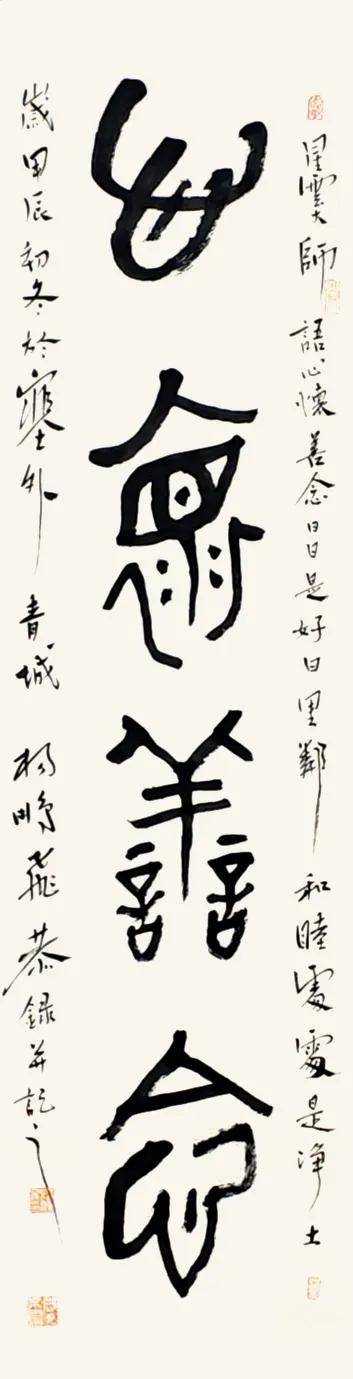 星雲大師語心懷善念日日是好日里鄰和睦處處是净土
心懷善念
歲甲辰初冬於塞外青城楊鵬飛恭録并記之